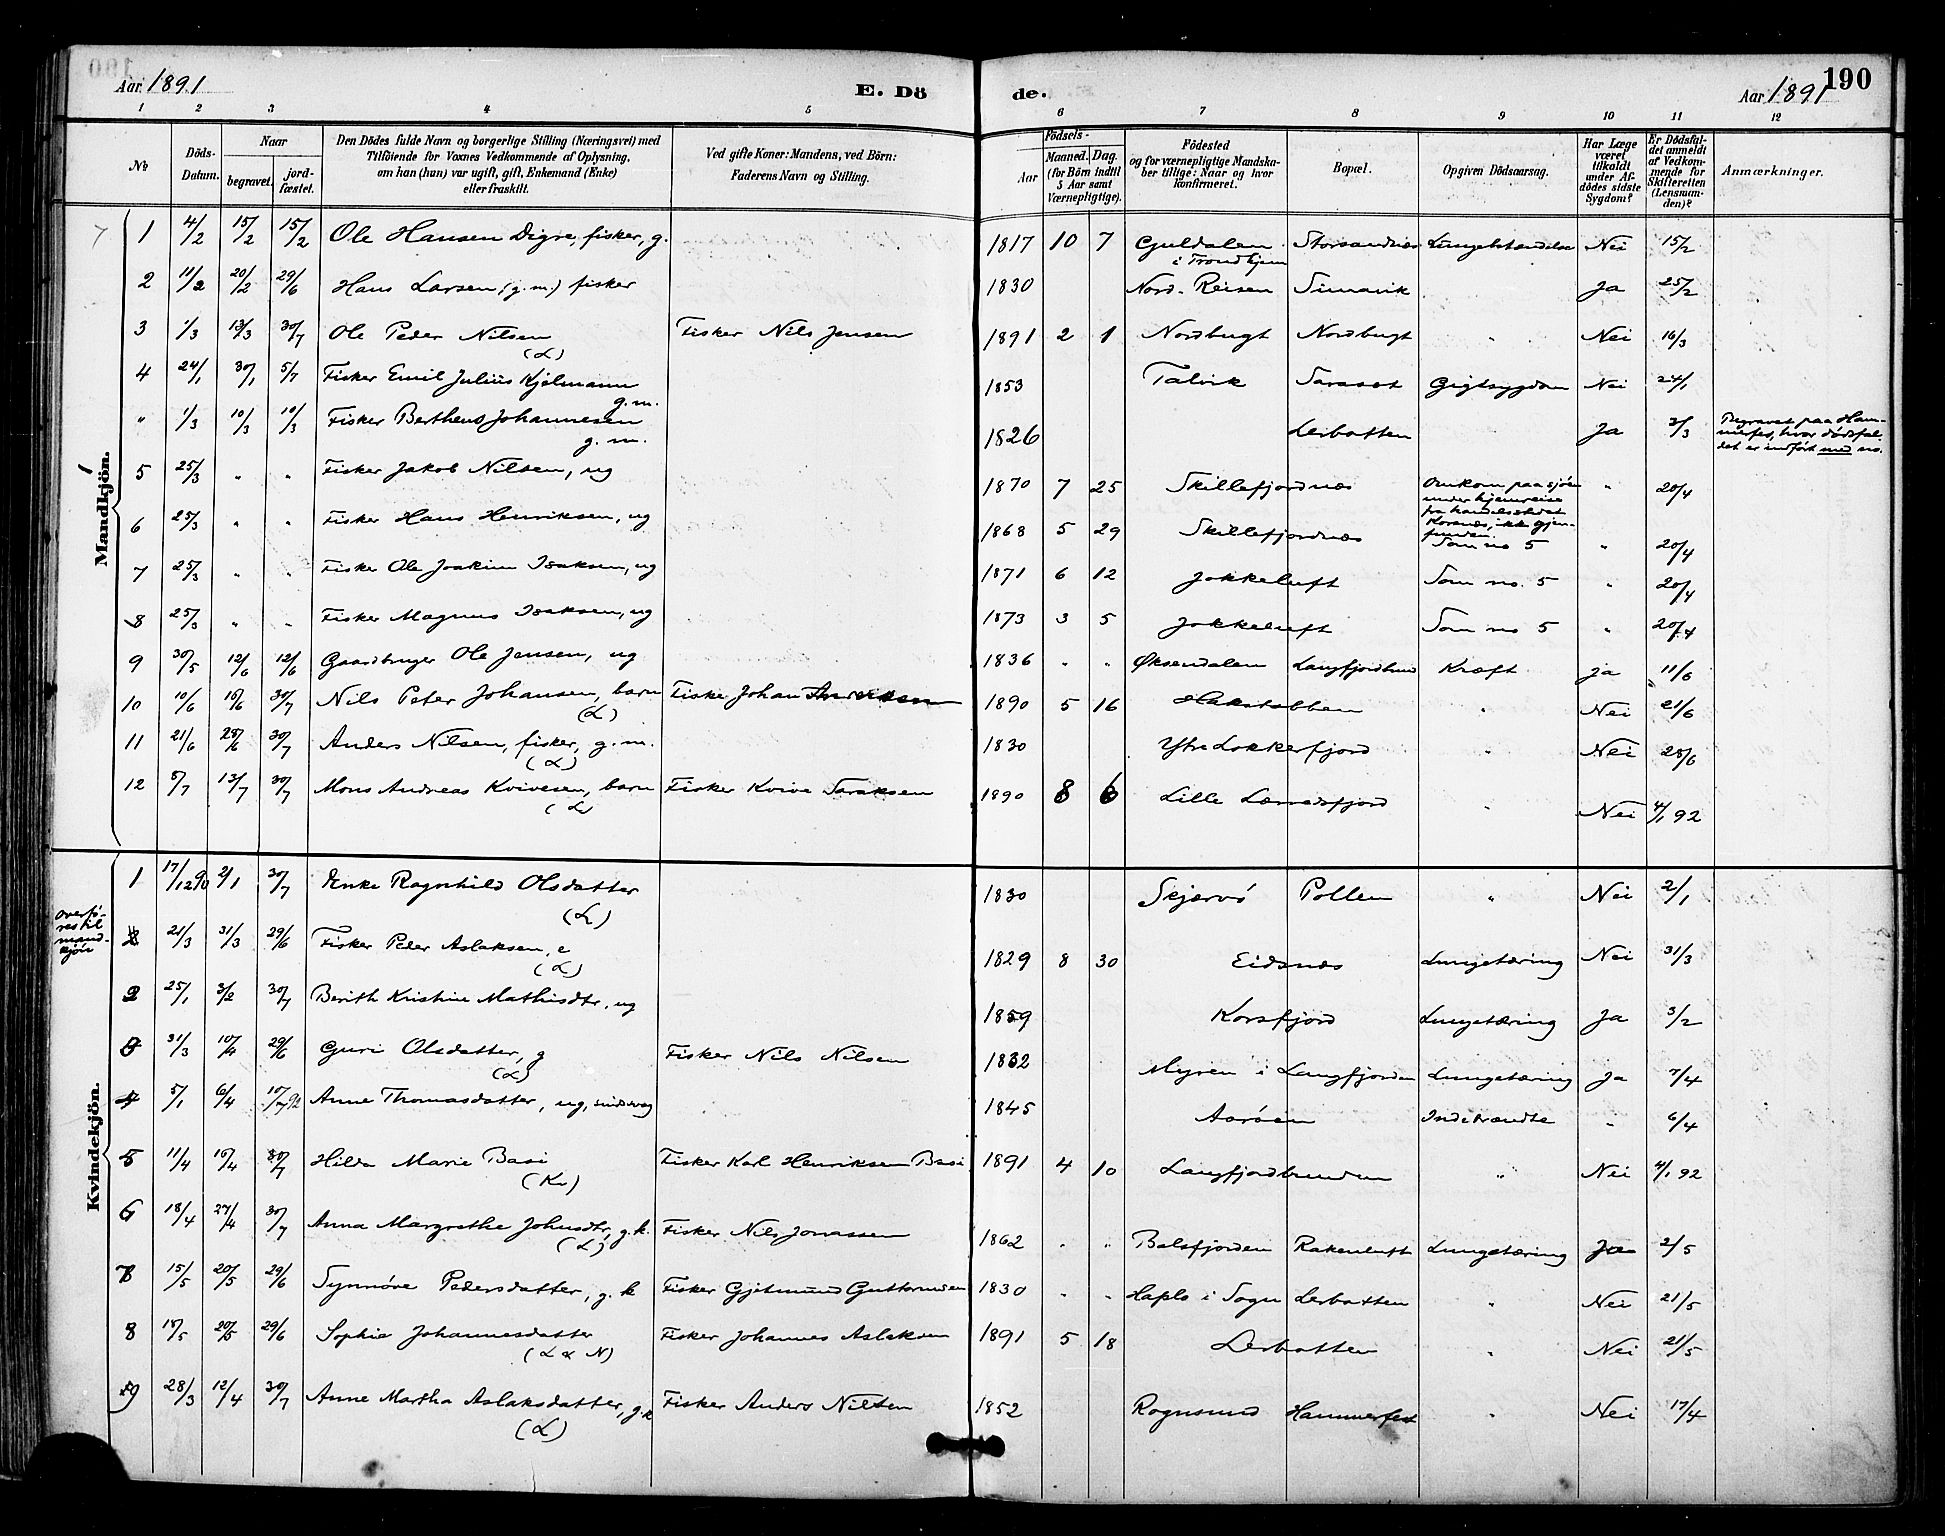 190
Aar 1891 E. Dö de. Aar 1891
1 2 3 4 5 6 7 8 9 10 11 12
№ Döds-Datum. Naar begravet. jord-fæstet. Den Dödes fulde Navn og borgerlige Stilling (Næringsvei) med Tilföiende for Voxnes Vedkommende af Oplysning, om han (hun) var ugift, gift, Enkemand (Enke) eller fraskilt. Ved gifte Koner: Mandens, ved Börn: Faderens Navn og Stilling. Födsels- Aar Maaned. Dag. (for Börn indtil 5 Aar samt Værnepligtige). Födested og for værnepligtige Mandskaber tillige: Naar og hvor konfirmeret. Bopæl. Opgiven Dödsaarsag. Har Læge været tilkaldt under Afdödes sidste Sygdom? Er Dödsfaldet anmeldt af Vedkommende for Skifteretten (Lensmanden)? Anmærkninger.
Mandkjön.
1 4/2 15/2 15/2 Ole Hansen Digre, fisker, g. 1817 10 7 Guldalen i Trondhjem Storsandnæs Lungebetændelse Nei 15/2
2 11/2 20/2 29/6 Hans Larsen (g.m.) fisker 1830 Nord-Reisen Simavik Ja 25/2
3 1/3 13/3 30/7 Ole Peder Nilsen (L) Fisker Nils Jensen 1891 2 1 Nordbugt Nordbugt " Nei 16/3
4 24/1 30/1 5/7 Fisker Emil Julius Kjelmann g.m. 1853 Talvik Saraset Gigtsygdom Nei 24/1
" 1/3 10/3 10/3 Fisker Bertheus Johannesen g.m. 1826 Lerbotten Ja 3/3 Begravet paa Hammerfest, hvor dødsfaldet er indført med no.
5 25/3 " " Fisker Jakob Nilsen, ug 1870 7 25 Skillefjordnæs Omkom paa sjøen under hjemreise fra handelsstedet Korsnæs, ikke gjenfunden. " 20/4
6 25/3 " " Fisker Hans Henriksen, ug 1868 5 29 Skillefjordnæs Som no 5 " 20/4
7 25/3 " " Fisker Ole Joakim Isaksen, ug 1871 6 12 Jokkeluft Som no. 5 " 20/4
8 25/3 " " Fisker Magnus Isaksen, ug 1873 3 5 Jokkeluft Som no 5 " 20/4
9 30/5 12/6 12/6 Gaardbruger Ole Jensen, ug 1836 " " Øksendalen Langfjordbund Kræft ja 11/6
10 10/6 16/6 30/7 Nils Peter Johansen, barn (L) Fisker Johan 1890 5 16 Hakstabben " Nei 21/6
11 21/6 28/6 30/7 Anders Nilsen, fisker, g.m. (L) 1830 Ytre Lokkerfjord " Nei 28/6
12 5/7 13/7 30/7 Mons Andreas Kvivesen, barn (L) Fisker Kvive Saraksen 1890 8 6 Lille Lerresfjord " Nei 4/1 92
Kvindekjön.
1 17/12 90 2/1 30/7 Enke Ragnhild Olsdatter (L) 1830 Skjervö Pollen " Nei 2/1
overføres til mandkjön
2 21/3 31/3 29/6 Fisker Peder Aslaksen, e (L) 1829 8 30 Eidsnæs Lungetæring Nei 31/3
2 25/1 3/2 30/7 Berith Kristine Mathisdtr, ug 1859 Korsfjord Lungetæring Ja 3/2
3 31/3 10/4 29/6 Guri Olsdatter, g (L) Fisker Nils Nilsen 1832 Myren i Langfjorden Lungetæring Ja 7/4
4 5/1 6/4 10/7 92 Anne Thomasdatter, ug, sindssvag 1845 Aaröen Indebrændte " 6/4
5 11/4 16/4 30/7 Hilda Marie Basi (Kv) Fisker Karl Henriksen Basi 1891 4 10 Langfjordbunden " Nei 4/1 92
6 18/4 27/4 30/7 Anna Margrethe Johnsdtr, g.k. (L) Fisker Nils Jonassen 1862 " " Balsfjorden Rakenluft Lungetæring Ja 2/5
7 15/5 20/5 29/6 Synnöve Pedersdatter, g.k Fisker Gjetmund Guttormsen 1830 " " Haplo i Sogn Lerbotten " Nei 21/5
8 18/5 20/5 29/6 Sophie Johannesdatter (L & N) Fisker Johannes Aslaksen 1891 5 18 Lerbotten " Nei 21/5
9 28/3 12/4 30/7 Anne Martha Aslaksdatter, g.k (L) Fisker Anders Nilsen 1852 Rognsund Hammerfest " Nei 17/4